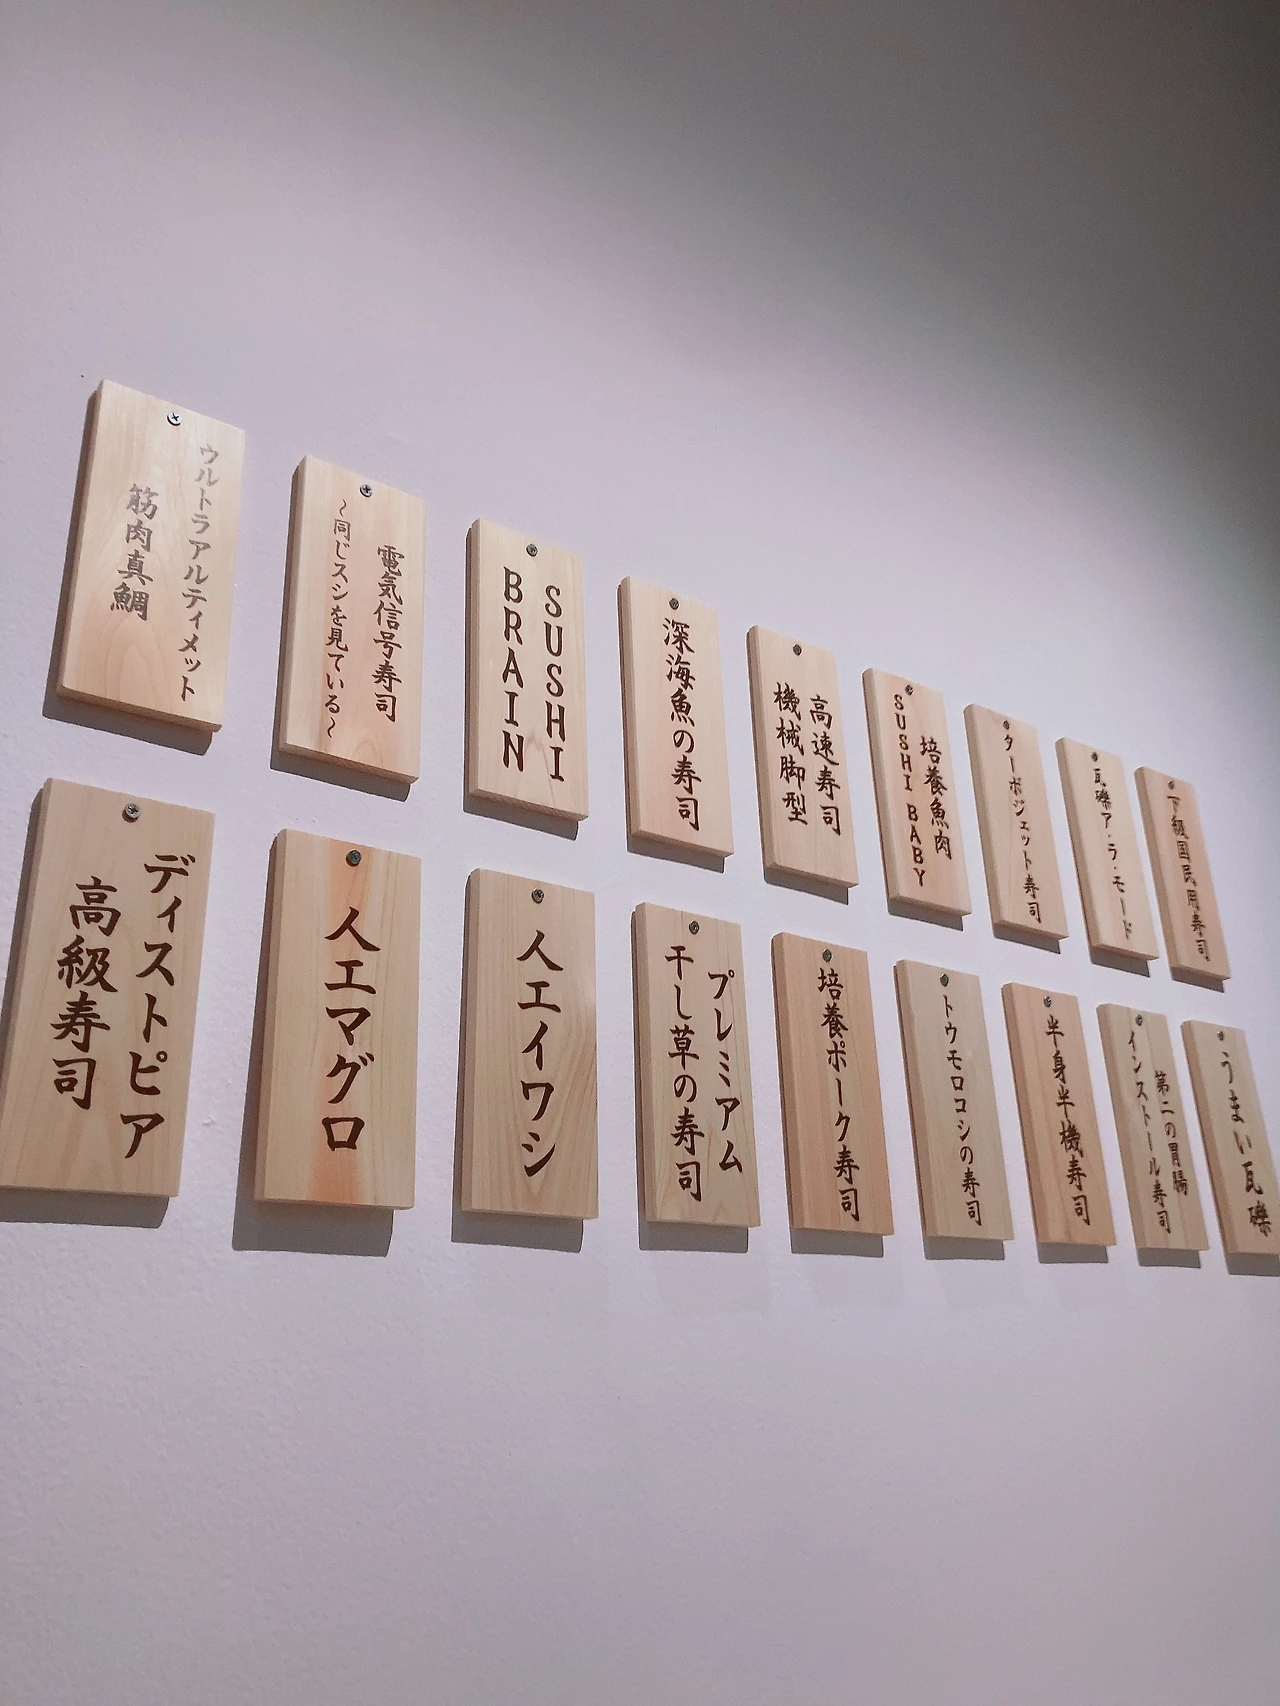 ウルトラアルティメット
筋肉真鯛
電気信号寿司
〜同じスシを見ている〜
SUSHI
BRAIN
深海魚の寿司
高速寿司
機械脚型
培養魚肉
SUSHI BABY
ターボジェット寿司
瓦礫ア・ラ・モード
下級国民用寿司
ディストピア
高級寿司
人工マグロ
人工イワシ
プレミアム
干し草の寿司
培養ポーク寿司
トウモロコシの寿司
半身半機寿司
第二の胃腸
インストール寿司
うまい瓦礫